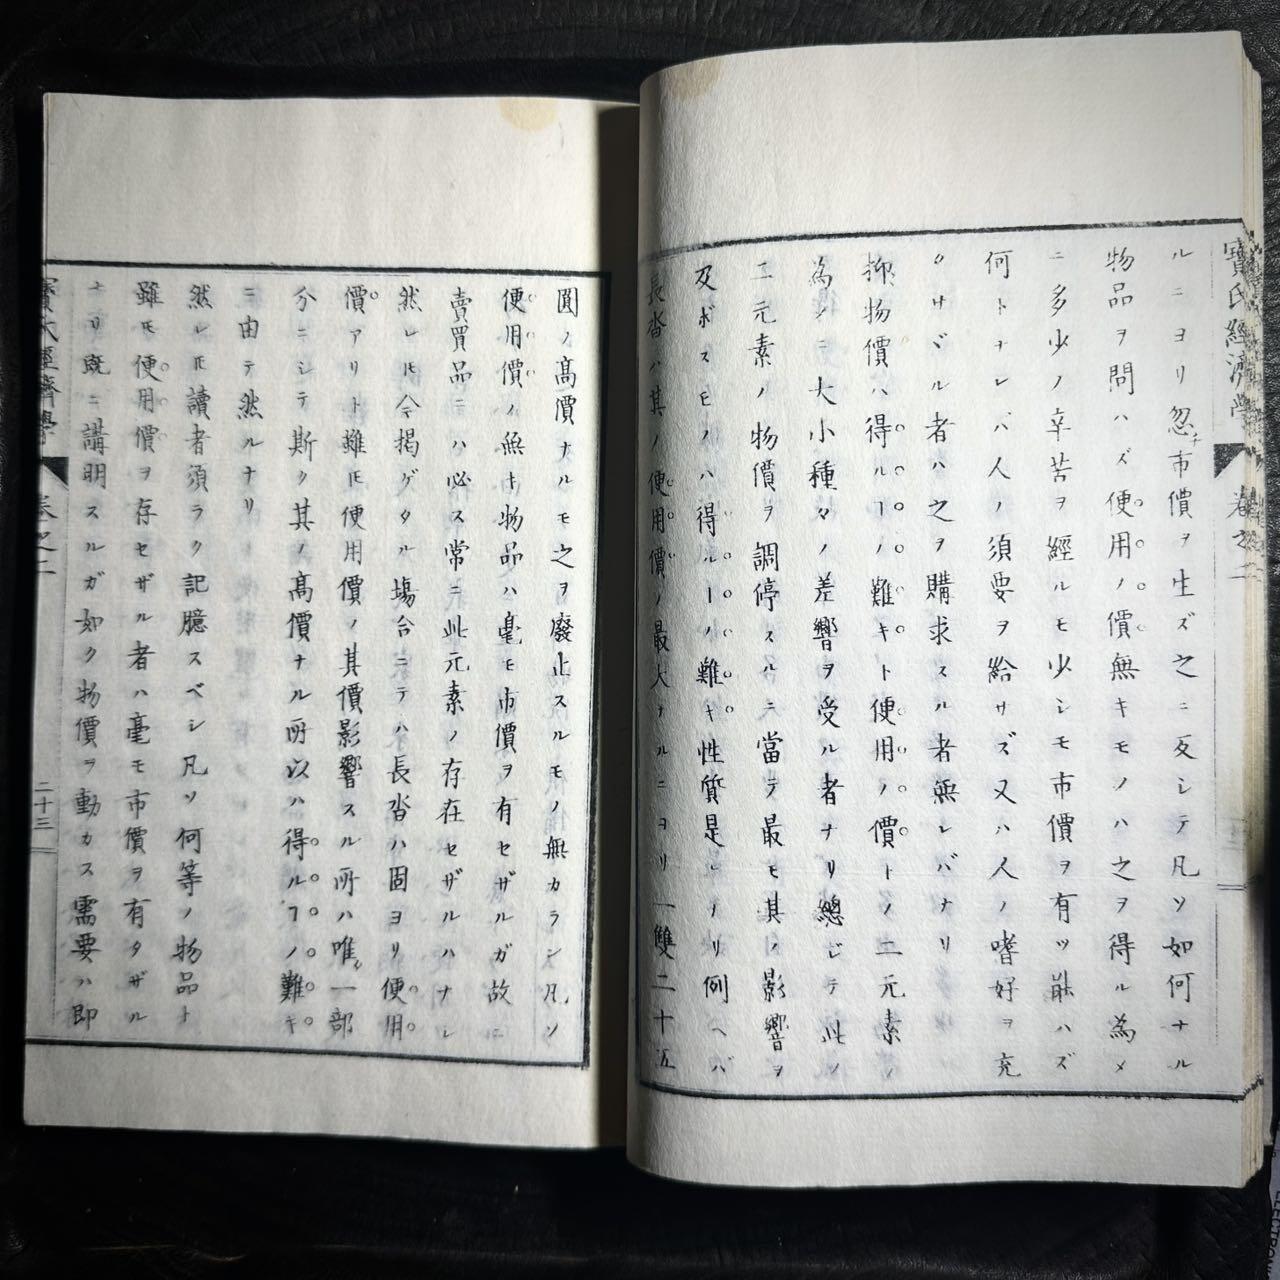 寳氏經濟學 卷之二
ルニヨリ忽チ市價ヲ生ズ之ニ反シテ凡ソ如何ナル
物品ヲ問ハズ便用ノ價無キモノハ之ヲ得ル為メ
ニ多少ノ辛苦ヲ經ルモ少シモ市價ヲ有ツ能ハズ
何トナレバ人ノ須要ヲ給サズ又ハ人ノ嗜好ヲ充
タサヾル者ハ之ヲ購求スル者無レバナリ
抑物價ハ得ルヿノ難キト便用ノ價トノ二元素ノ
為メニ大小種々ノ差響ヲ受ル者ナリ總ジテ此ノ
二元素ノ物價ヲ調停スルニ當テ最モ其ノ影響ヲ
及ボスモノハ得ルヿノ難キ性質是レノリ例ヘバ
長沓ハ其ノ便用價ノ最大ナルニヨリ一雙二十五
圓ノ高價ナルモ之ヲ廢止スルモノ無カラン凡ソ
便用價ノ無キ物品ハ毫モ市價ヲ有セザルガ故ニ
賣買品ニハ必ス常ニ此元素ノ存在セザルハナシ
然レ𪜈今揭ゲタル塲合ニテハ長沓ハ固ヨリ便用
價アリト雖𪜈便用價ノ其價影響スル所ハ唯一部
分ニシテ斯ク其ノ高價ナル所以ハ得ルヿノ難キ
ニ由テ然ルナリ
然レ𪜈讀者須ラク記臆スベシ凡ソ何等ノ物品ト
雖モ便用價ヲ存セザル者ハ毫モ市價ヲ有タザル
ナリ既ニ講明スルガ如ク物價ヲ動カス需要ハ即
寳氏經濟學 卷之二 二十三